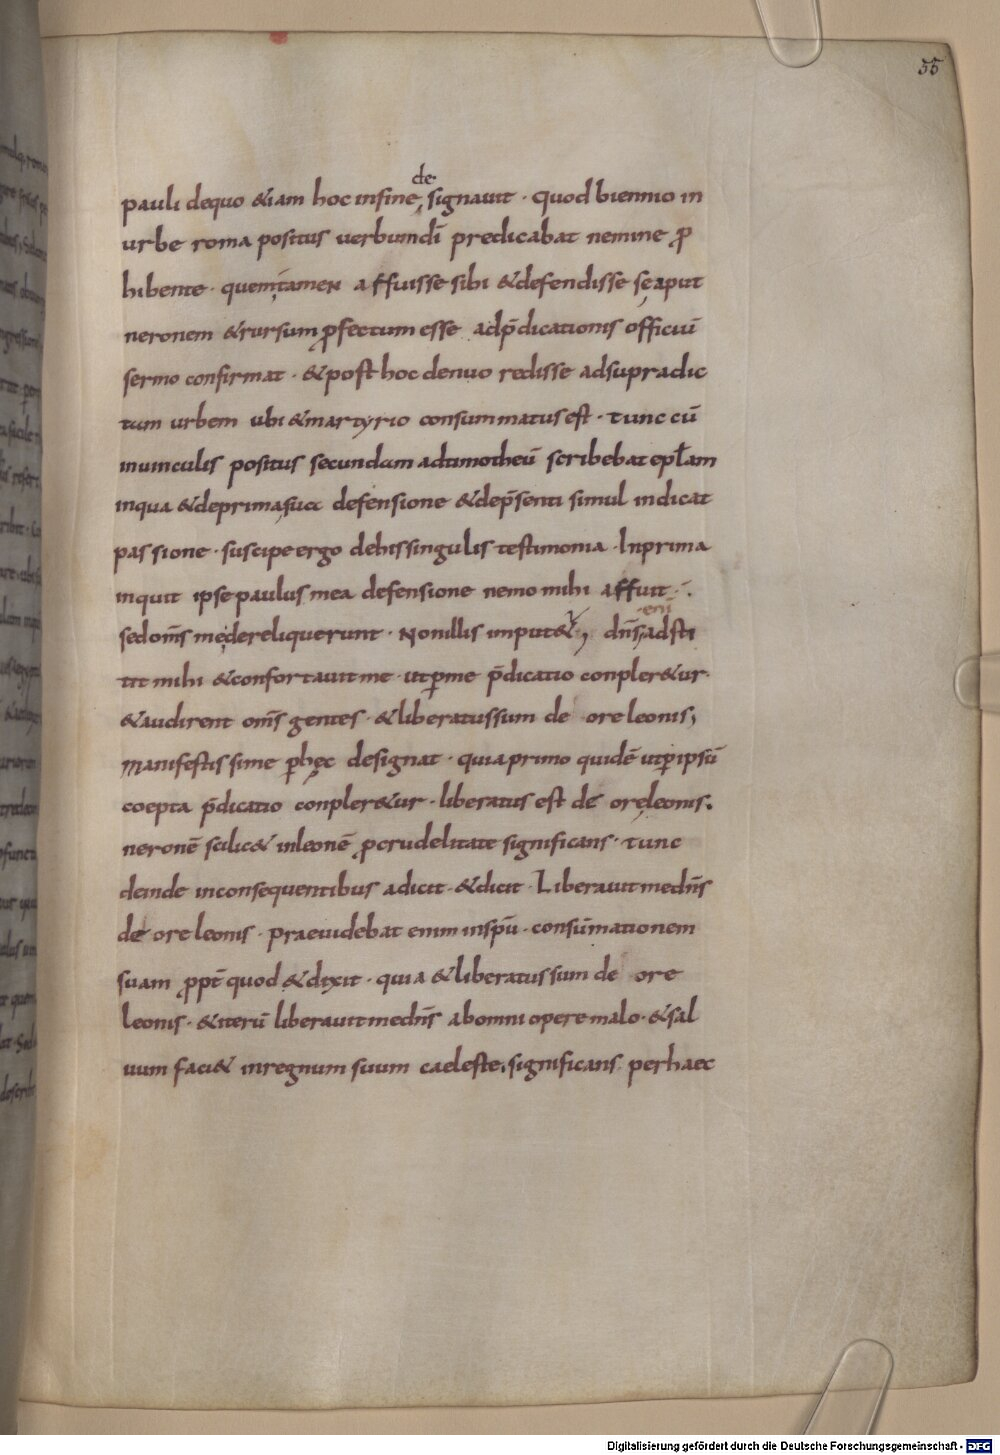 55
pauli dequo &iam hoc infine designauit · quod biennio in
urbe roma positus uerbum dī predicabat nemine ꝓ
hibente · quem tamen affuisse sibi & defendisse se aput
neronem & rursum ꝓfectum esse ad p̄dicationis officiū
sermo confirmat · & post hoc denuo redisse ad supradic
tam urbem ubi & martyrio consummatus est · tunc cū
in uinculis positus secundam ad timotheū scribebat epłam
in qua & de prima sua defensione & de p̄senti simul indicat
passione · suscipe ergo de his singulis testimonia · In prima
inquit ipse paulus mea defensione nemo mihi affuit ·
sed om̄s me dereliquerunt · Non illis imput&ur, dn̄s enī adsti
tit mihi & confortauit me · ut ꝑ me p̄dicatio conpler&ur·
& audirent om̄s gentes · & liberatus sum de ore leonis;
manifestissime ꝑ hęc designat · quia primo quidē ut ꝑ ipsū
coepta p̄dicatio conpler&ur · liberatus est de ore leonis.
neronē scilic& in leonē ꝓ crudelitate significans · tunc
deinde in consequentibus adicit · & dicit · Liberauit me dn̄s
de ore leonis · praeuidebat enim in sp̄u · consūmationem
suam ꝓpt̄ quod & dixit · quia & liberatus sum de ore
leonis · & iterū liberauit me dn̄s ab omni opere malo · & sal
uum faci& in regnum suum caeleste, significans perhaec
Digitalisierung gefördert durch die Deutsche Forschungsgemeinschaft - DFG